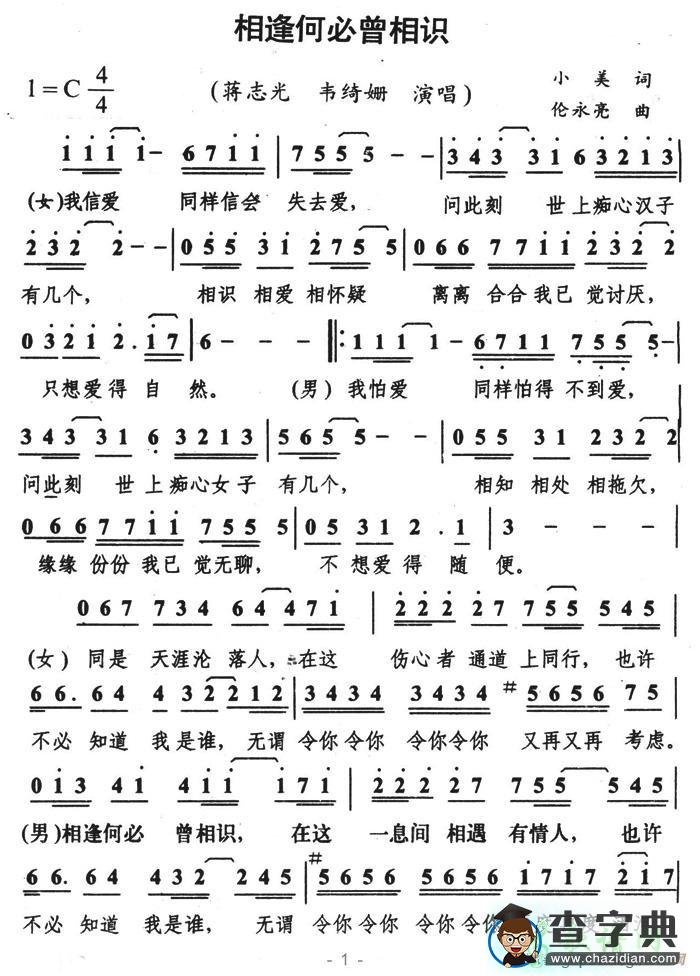 相逢何必曾相识
1=C 4/4 (蒋志光 韦绮姗 演唱) 小美 词
伦永亮 曲
1 1 1 1 1- 6 7 1 1 | 7 5 5 5 5 - - | 3 4 3 3 1 6 3 2 1 3
(女)我信爱 同样信会 失去爱, 问此刻 世上痴心汉子
2 3 2 2 2 - - | 0 5 5 3 1 2 7 5 5 | 0 6 6 7 7 1 1 2 7 7
有几个, 相识 相爱 相怀疑 离离 合合我已 觉讨厌,
0 3 2 1 2. 1 7 | 6 - - ‖: 1 1 1 1 1- 6 7 1 1 7 5 5 5-
只想爱得 自 然。 (男)我怕爱 同样怕得 不到爱,
3 4 3 3 1 6 3 2 1 3 | 5 6 5 5 5 - - | 0 5 5 3 1 2 3 2 2
问此刻 世上痴心女子 有几个, 相知 相处 相拖欠,
0 6 6 7 7 1 1 7 5 5 | 0 5 3 1 2 . 1 | 3 - - -
缘缘 份份 我已 觉无聊, 不 想爱得 随 便。
0 6 7 7 3 4 6 4 4 7 1 | 2 2 2 2 7 7 5 5 5 4 5
(女) 同是 天涯沦 落人, 在这 伤心者 通道 上同行, 也许
6 6. 6 4 4 3 2 2 2 1 2 | 3 4 3 4 3 4 3 4 #5 6 5 6 7 5
不必 知道 我是谁, 无谓 令你令你 令你令你 又再又再 考虑。
0 1 3 4 1 4 1 1 1 7 1 | 2 2 2 2 7 7 5 5 5 4 5
(男)相逢何必 曾相识, 在这 一息间 相遇 有情人, 也许
6 6. 6 4 4 3 2 2 4 5 | #5 6 5 6 5 6 5 6 1 7 1 7 2 1 7
不必 知道 我是谁, 无谓 令你令你 令你令你
查字典
www.chazidian.com
- 1 -